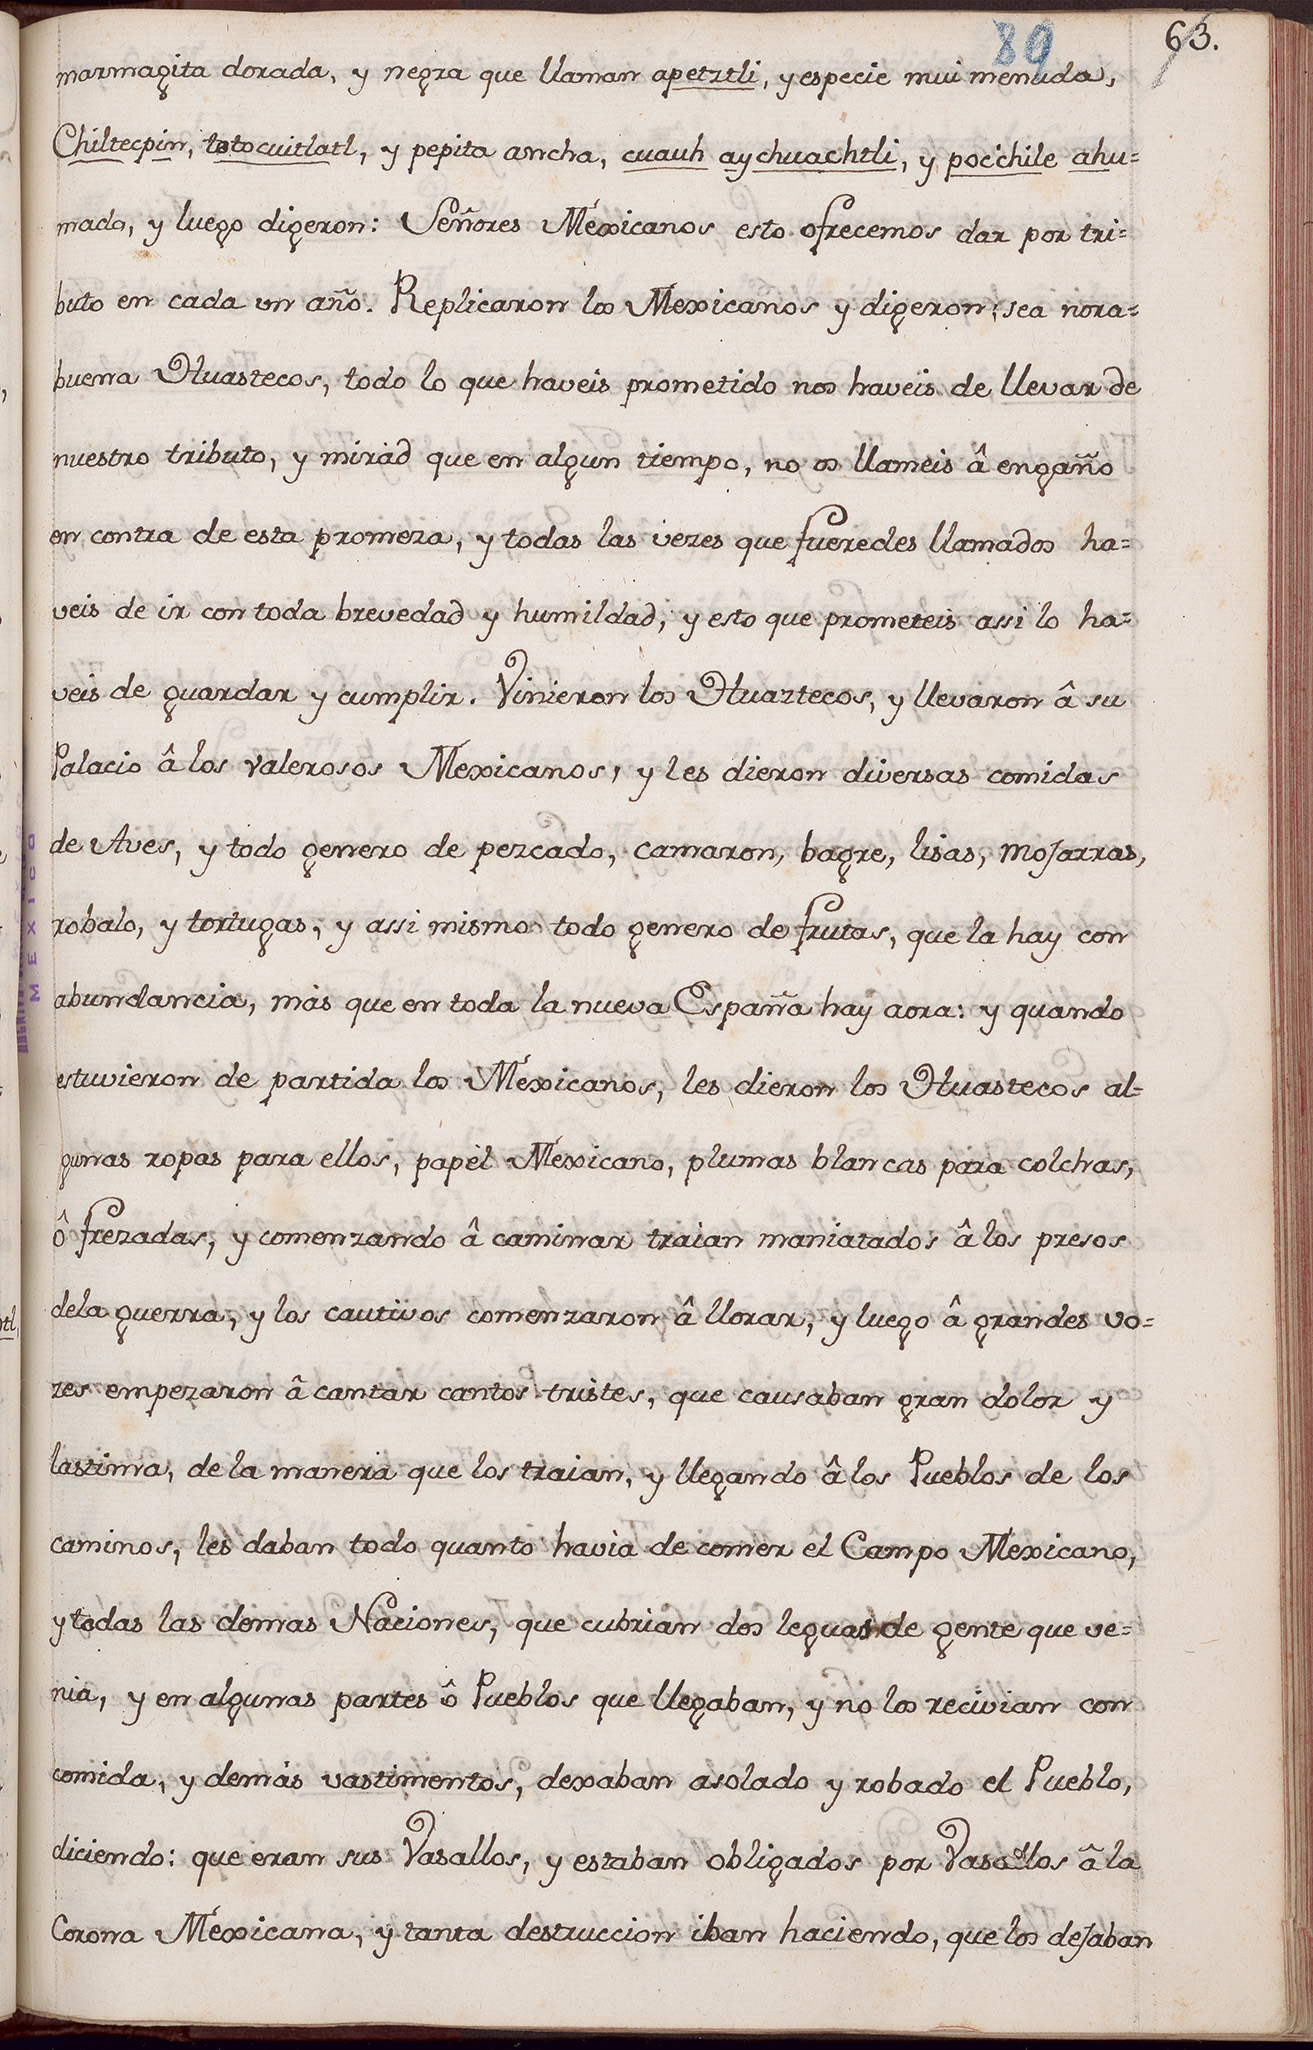 89 63.
marmagita dorada, y negra que llaman apetztli, y especie mui menuda,
Chiltecpin, totocuitlatl, y pepita ancha, cuauh aychuachtli, y pocchile ahu=
mado, y luego digeron: Señores Mexicanos esto ofrecemos dar por tri=
buto en cada un año. Replicaron los Mexicanos y digeron; sea nora=
buena Huastecos, todo lo que haveis prometido nos haveis de llevar de
nuestro tributo, y mirad que en algun tiempo, no os llameis â engaño
en contra de esta promeza, y todas las vezes que fueredes llamados ha=
veis de ir con toda brevedad y humildad; y esto que prometeis assi lo ha=
veis de guardar y cumplir. Vinieron los Huaztecos, y llevaron â su
Palacio â los valerosos Mexicanos, y les dieron diversas comidas
de Aves, y todo genero de pezcado, camaron, bagre, lisas, mojarras,
robalo, y tortugas, y assi mismo todo genero de frutas, que la hay con
abundancia, más que en toda la nueva España hay aora: y quando
estuvieron de partida los Mexicanos, les dieron los Huastecos al=
gunas ropas para ellos, papel Mexicano, plumas blancas para colchas,
ô frezadas, y comenzando â caminar traian maniatados â los presos
dela guerra, y los cautivos comenzaron â llorar, y luego â grandes vo=
zes empezaron â cantar cantos tristes, que causaban gran dolor y
lastima, de la manera que los traian, y llegando â los Pueblos de los
caminos, les daban todo quanto havia de comer el Campo Mexicano,
y todas las demas Naciones, que cubrian dos leguas de gente que ve=
nia, y en algunas partes ô Pueblos que llegaban, y no los recivian con
comida, y demás vastimentos, dexaban asolado y robado el Pueblo,
diciendo: que eran sus Vasallos, y estaban obligados por Vasallos â la
Corona Mexicana, y tanta destruccion iban haciendo, que los dejaban
MEXICO